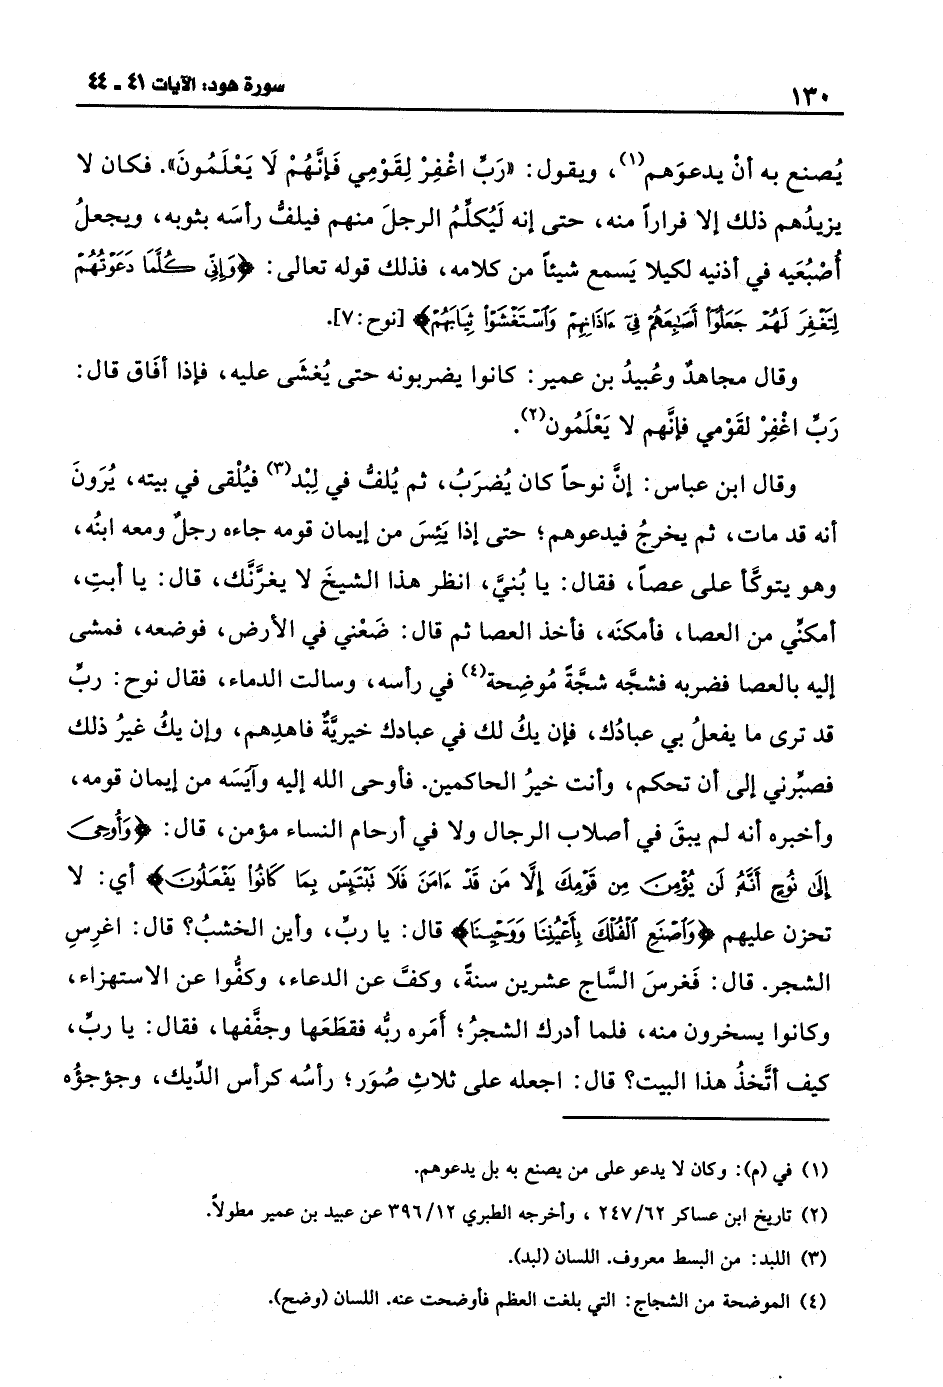 ١٣٠
سورة هود: الآيات ٤١ - ٤٤
يُصنع به أنْ يدعوَهم(١)، ويقول: «رَبِّ اغْفِرْ لِقَوْمِي فَإِنَّهُمْ لَا يَعْلَمُونَ». فكان لا
يزيدُهم ذلك إلا فراراً منه، حتى إنه لَيُكلِّمُ الرجلَ منهم فيلفُّ رأسَه بثوبه، ويجعلُ
أُصْبُعَيه في أذنيه لكيلا يَسمع شيئاً من كلامه، فذلك قوله تعالى: ﴿وَإِنِّي كُلَّمَا دَعَوْتُهُمْ
لِتَغْفِرَ لَهُمْ جَعَلُوٓا۟ أَصَٰبِعَهُمْ فِىٓ ءَاذَانِهِمْ وَٱسْتَغْشَوْا۟ ثِيَابَهُمْ﴾ [نوح:٧].
وقال مجاهدٌ وعُبيدُ بن عمير: كانوا يضربونه حتى يُغشَى عليه، فإذا أفَاق قال:
رَبِّ اغْفِرْ لقَوْمي فإنَّهم لا يَعْلَمُون(٢).
وقال ابن عباس: إنَّ نوحاً كان يُضرَبُ، ثم يُلفُّ في لِبْد(٣) فيُلْقى في بيته، يُرَونَ
أنه قد مات، ثم يخرجُ فيدعوهم؛ حتى إذا يَئِسَ من إيمان قومه جاءه رجلٌ ومعه ابنُه،
وهو يتوكَّأ على عصاً، فقال: يا بُنيَّ، انظر هذا الشيخَ لا يغرَّنَّك، قال: يا أبتِ،
أمكنِّي من العصا، فأمكنَه، فأخذ العصا ثم قال: ضَعْني في الأرض، فوضعه، فمشى
إليه بالعصا فضربه فشجَّه شجَّةً مُوضِحة(٤) في رأسه، وسالت الدماء، فقال نوح: ربِّ
قد ترى ما يفعلُ بي عبادُك، فإن يكُ لك في عبادك خيريَّةٌ فاهدِهم، وإن يكُ غيرُ ذلك
فصبِّرني إلى أن تحكم، وأنت خيرُ الحاكمين. فأوحى الله إليه وآيَسَه من إيمان قومه،
وأخبره أنه لم يبقَ في أصلاب الرجال ولا في أرحام النساء مؤمن، قال: ﴿وَأُوحِىَ
إِلَىٰ نُوحٍ أَنَّهُۥ لَن يُؤْمِنَ مِن قَوْمِكَ إِلَّا مَن قَدْ ءَامَنَ فَلَا تَبْتَئِسْ بِمَا كَانُوا۟ يَفْعَلُونَ﴾ أي: لا
تحزن عليهم ﴿وَٱصْنَعِ ٱلْفُلْكَ بِأَعْيُنِنَا وَوَحْيِنَا﴾ قال: يا ربِّ، وأين الخشبُ؟ قال: اغرِسِ
الشجر. قال: فَغرسَ السَّاج عشرين سنةً، وكفَّ عن الدعاء، وكفُّوا عن الاستهزاء،
وكانوا يسخرون منه، فلما أدرك الشجرُ؛ أَمَره ربُّه فقطَعَها وجفَّفها، فقال: يا ربِّ،
كيف أتَّخذُ هذا البيت؟ قال: اجعله على ثلاثِ صُوَر؛ رأسُه كرأس الدِّيك، وجؤجؤُه
(١) في (م): وكان لا يدعو على من يصنع به بل يدعوهم.
(٢) تاريخ ابن عساكر ٦٢/ ٢٤٧ ، وأخرجه الطبري ١٢/ ٣٩٦ عن عبيد بن عمير مطولاً.
(٣) اللبد: من البسط معروف. اللسان (لبد).
(٤) الموضحة من الشجاج: التي بلغت العظم فأوضحت عنه. اللسان (وضح).